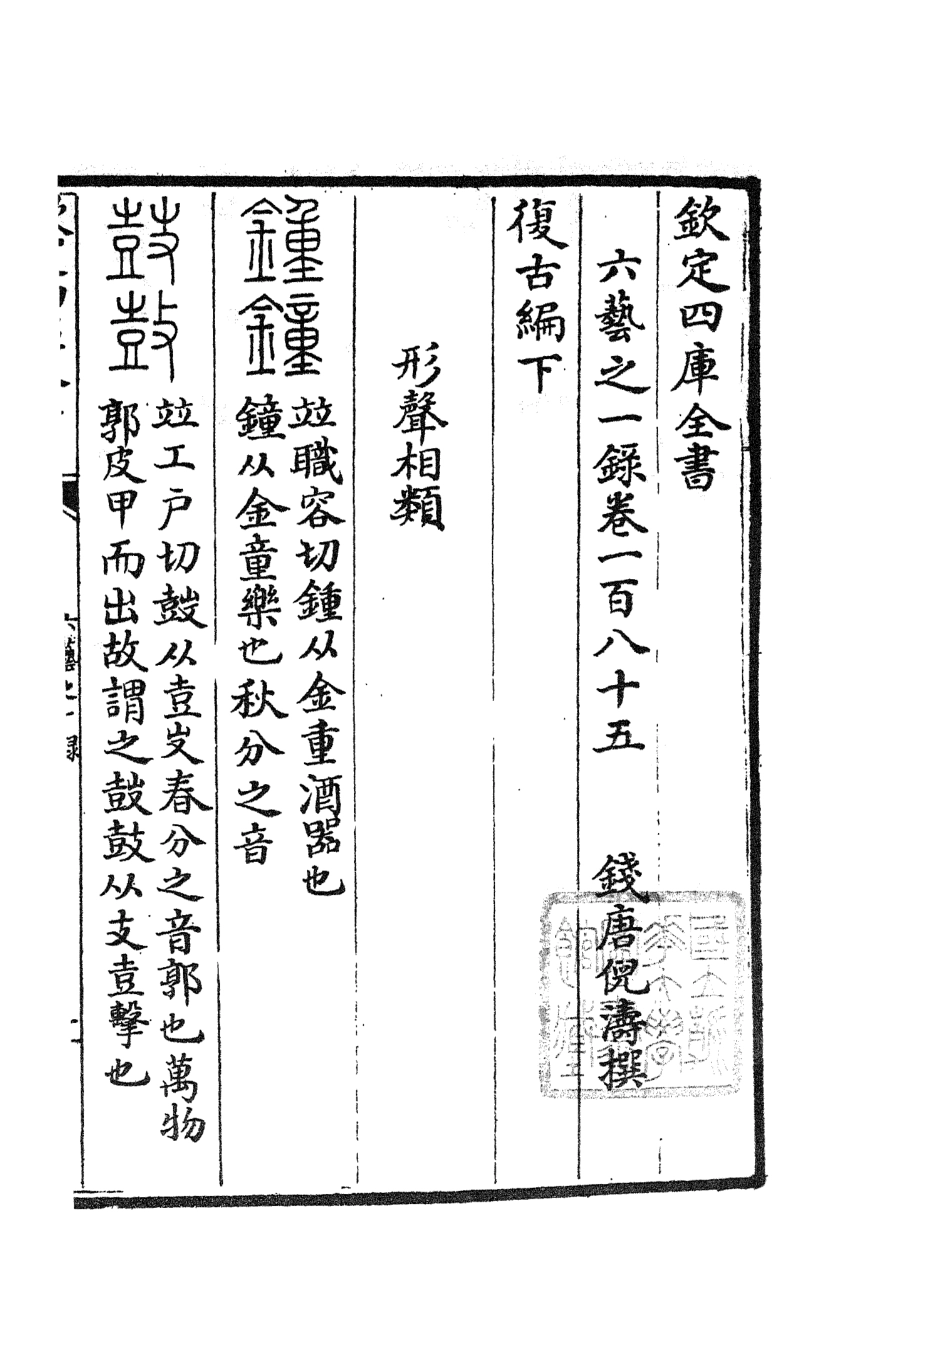 欽定四庫全書
六藝之一錄卷一百八十五 錢唐倪濤撰
復古編下
形聲相類
鍾鐘
竝職容切鍾从金重酒器也
鐘从金童樂也秋分之音
鼓鼔
竝工戶切鼓从壴攴春分之音郭也萬物
郭皮甲而出故謂之鼓鼓从支壴擊也
六藝之一錄